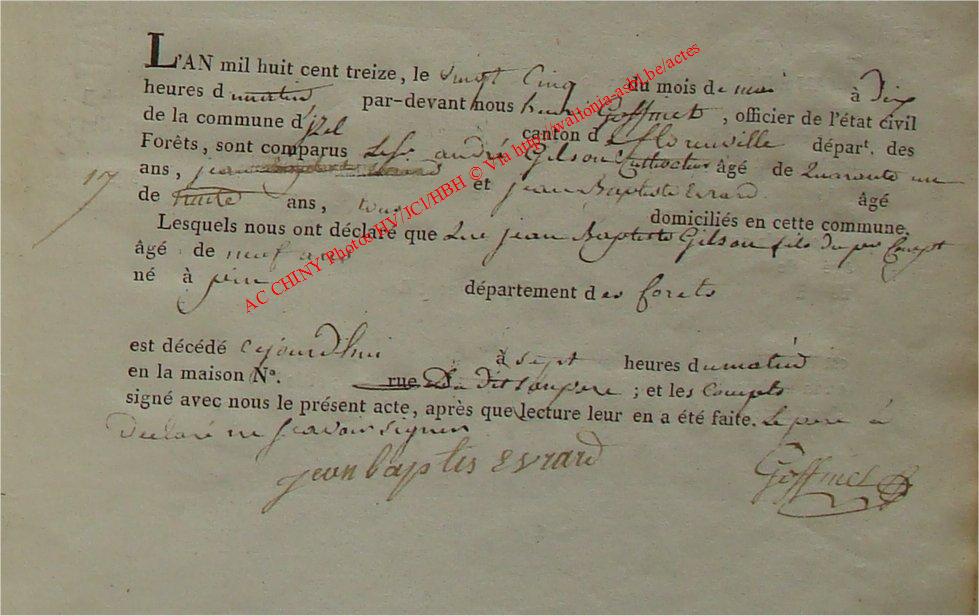 L'AN mil huit cent treize, le vingt Cinq du mois de mai à Dix
heures d u matin par-devant nous henri Goffinet, officier de l'état civil
de la commune d'jzel canton de florenville départ. des
Forêts, sont comparus Le Sr. andré Gilson Cultivateur âgé de Quarante un
17 ans, jean et jean Baptiste Evrard âgé
de ans, tous domiciliés en cette commune.
Lesquels nous ont déclaré que Que jean Baptiste Gilson fils du per Compt
âgé de neuf ans
né à département des forets
est décédé cejourdhui à sept heures du matin
en la maison No. rue Du dit Son pere ; et les Compts
signé avec nous le présent acte, après que lecture leur en a été faite. Le pere à
Declaré ne scavoir signer
jean baptis Evrard Goffinet
AC CHINY Photos HV/JCl/HBH © Via http://wallonia-asbl.be/actes